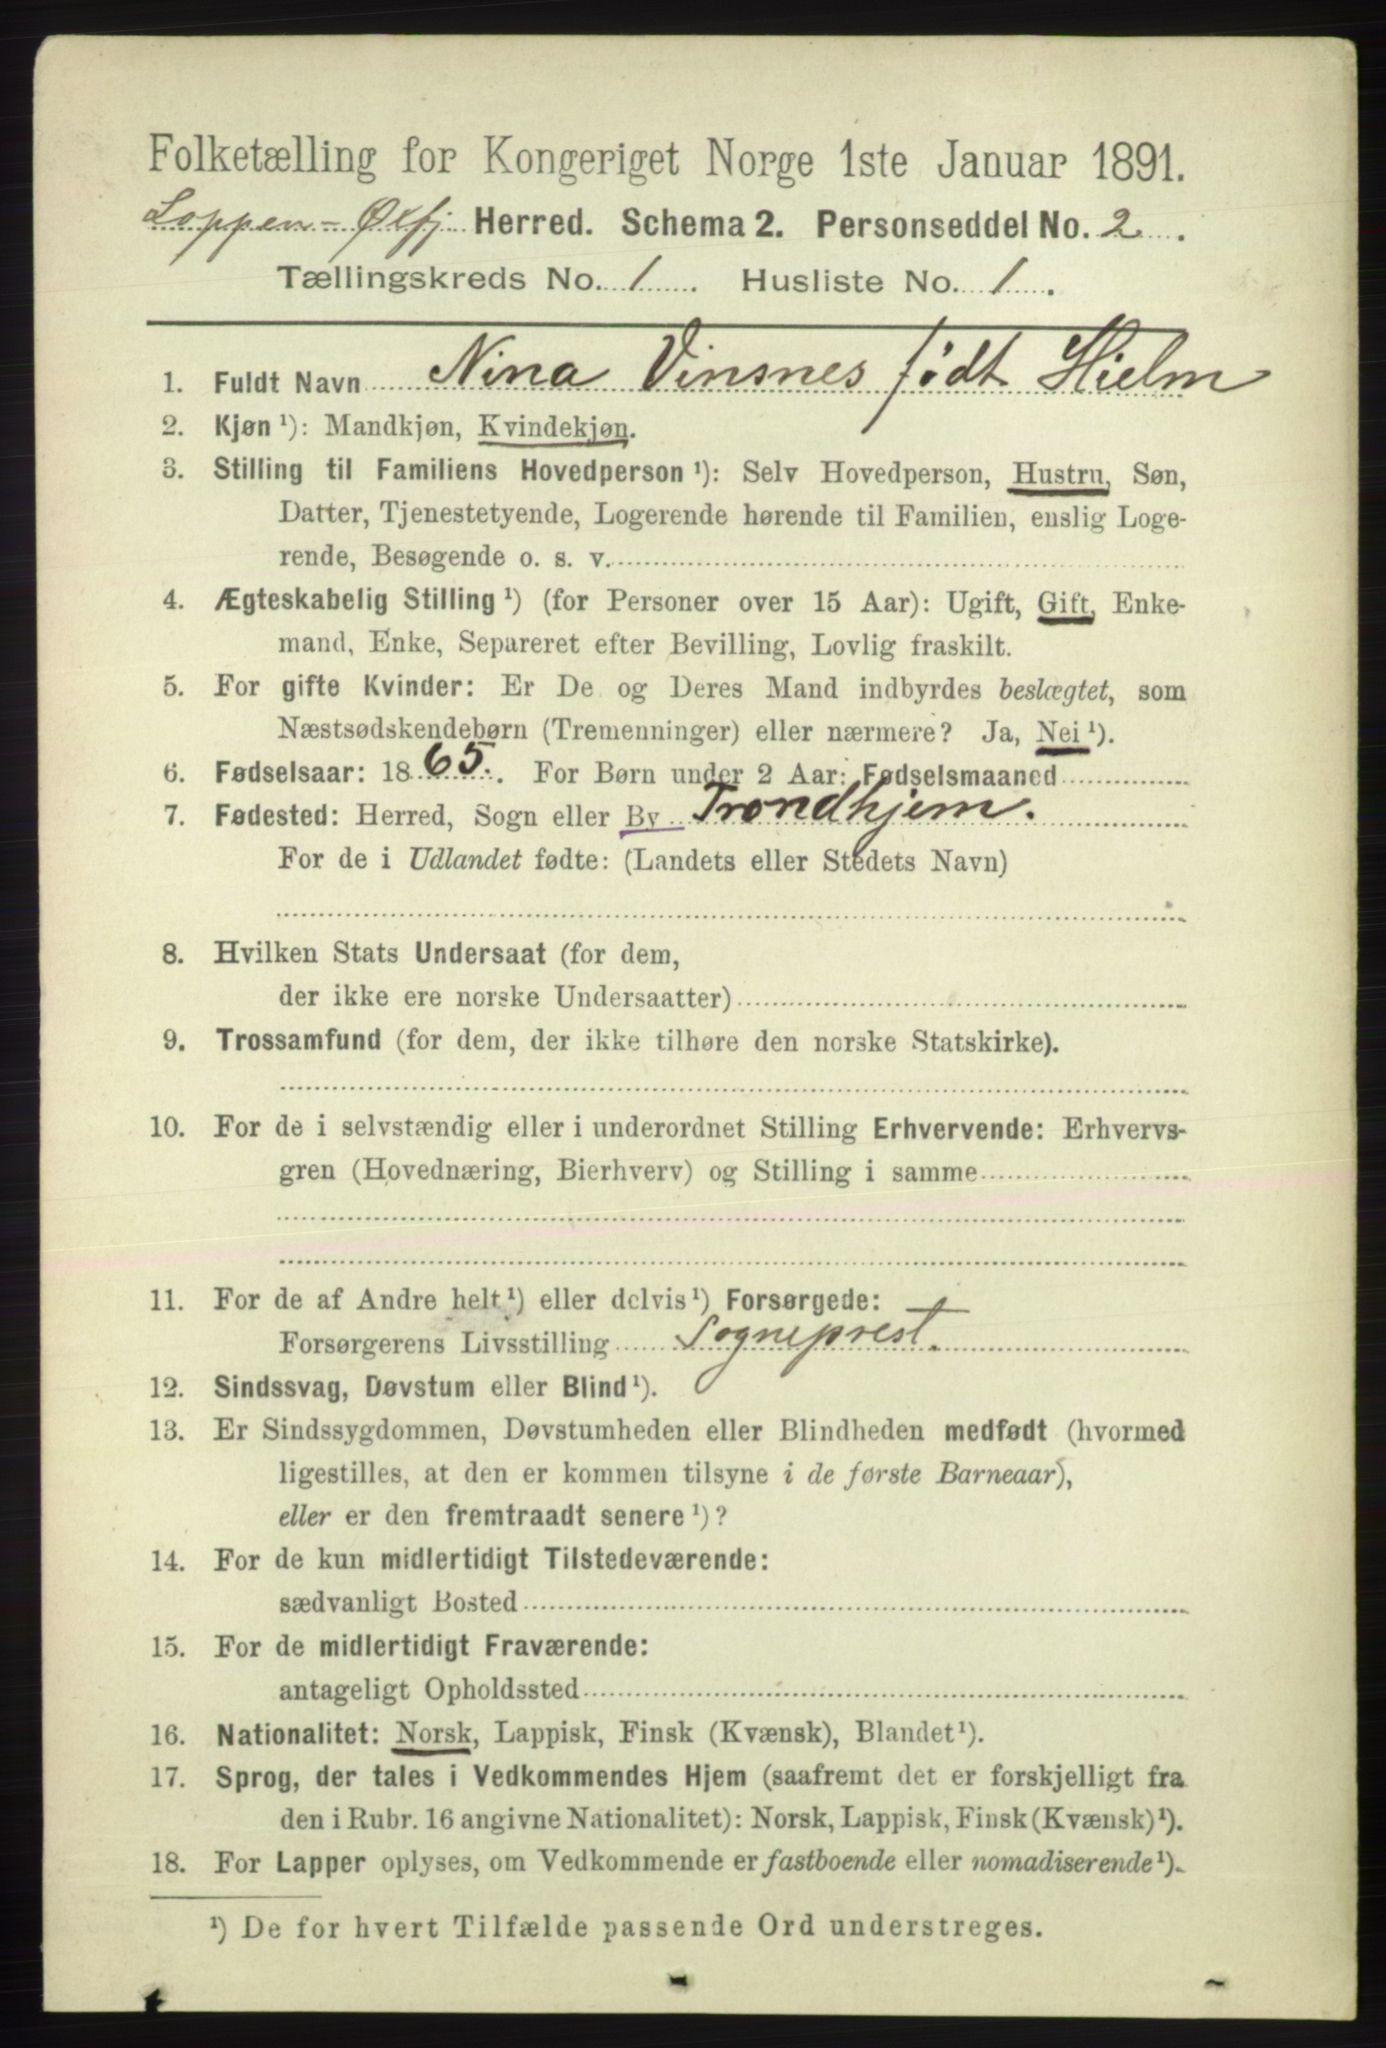 Folketælling for Kongeriget Norge 1ste Januar 1891.
Loppen-Øxfj. Herred. Schema 2. Personseddel No. 2.
Tællingskreds No. 1. Husliste No. 1.
1. Fuldt Navn Nina Vinsnes født Hielm
2. Kjøn ¹): Mandkjøn, Kvindekjøn.
3. Stilling til Familiens Hovedperson ¹): Selv Hovedperson, Hustru, Søn,
Datter, Tjenestetyende, Logerende hørende til Familien, enslig Loge-
rende, Besøgende o. s. v.
4. Ægteskabelig Stilling ¹) (for Personer over 15 Aar): Ugift, Gift, Enke-
mand, Enke, Separeret efter Bevilling, Lovlig fraskilt.
5. For gifte Kvinder: Er De og Deres Mand indbyrdes beslægtet, som
Næstsødskendebørn (Tremenninger) eller nærmere? Ja, Nei ¹).
6. Fødselsaar: 1865. For Børn under 2 Aar: Fødselsmaaned
7. Fødested: Herred, Sogn eller By Trondhjem.
For de i Udlandet fødte: (Landets eller Stedets Navn)
8. Hvilken Stats Undersaat (for dem,
der ikke ere norske Undersaatter)
9. Trossamfund (for dem, der ikke tilhøre den norske Statskirke).
10. For de i selvstændig eller i underordnet Stilling Erhvervende: Erhvervs-
gren (Hovednæring, Bierhverv) og Stilling i samme
11. For de af Andre helt ¹) eller delvis ¹) Forsørgede:
Forsørgerens Livsstilling Sogneprest.
12. Sindssvag, Døvstum eller Blind ¹).
13. Er Sindssygdommen, Døvstumheden eller Blindheden medfødt (hvormed
ligestilles, at den er kommen tilsyne i de første Barneaar),
eller er den fremtraadt senere ¹)?
14. For de kun midlertidigt Tilstedeværende:
sædvanligt Bosted
15. For de midlertidigt Fraværende:
antageligt Opholdssted
16. Nationalitet: Norsk, Lappisk, Finsk (Kvænsk), Blandet ¹).
17. Sprog, der tales i Vedkommendes Hjem (saafremt det er forskjelligt fra
den i Rubr. 16 angivne Nationalitet): Norsk, Lappisk, Finsk (Kvænsk) ¹).
18. For Lapper oplyses, om Vedkommende er fastboende eller nomadiserende ¹).
¹) De for hvert Tilfælde passende Ord understreges.